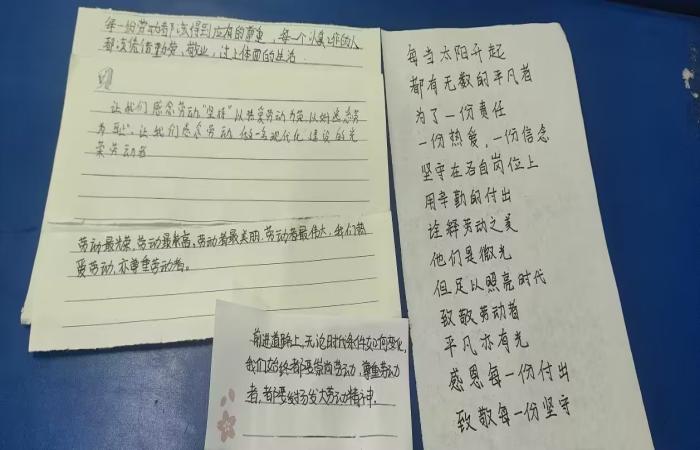 每一份劳动都应该得到应有的尊重，每一个认真工作的人
都该凭借勤劳、敬业，过上体面的生活.
让我们感念劳动“坚持”以热爱劳动为荣以
为耻. 让我们感念劳动 做一名现代化 建设的光
荣劳动者
劳动最光荣,劳动最崇高,劳动者最美丽.劳动者最伟大,我们热
爱劳动,亦尊重劳动者。
前进道路上,无论时代条件如何变化,
我们始终都要崇尚劳动,尊重劳动
者,都要发扬大劳动精神.
每当太阳升起
都有无数的平凡者
为了一份责任
一份热爱,一份信念
坚守在各自岗位上
用辛勤的付出
诠释劳动之美
他们是微光
但足以照亮时代
致敬劳动者
平凡亦有光
感恩每一份付出
致敬每一份坚守